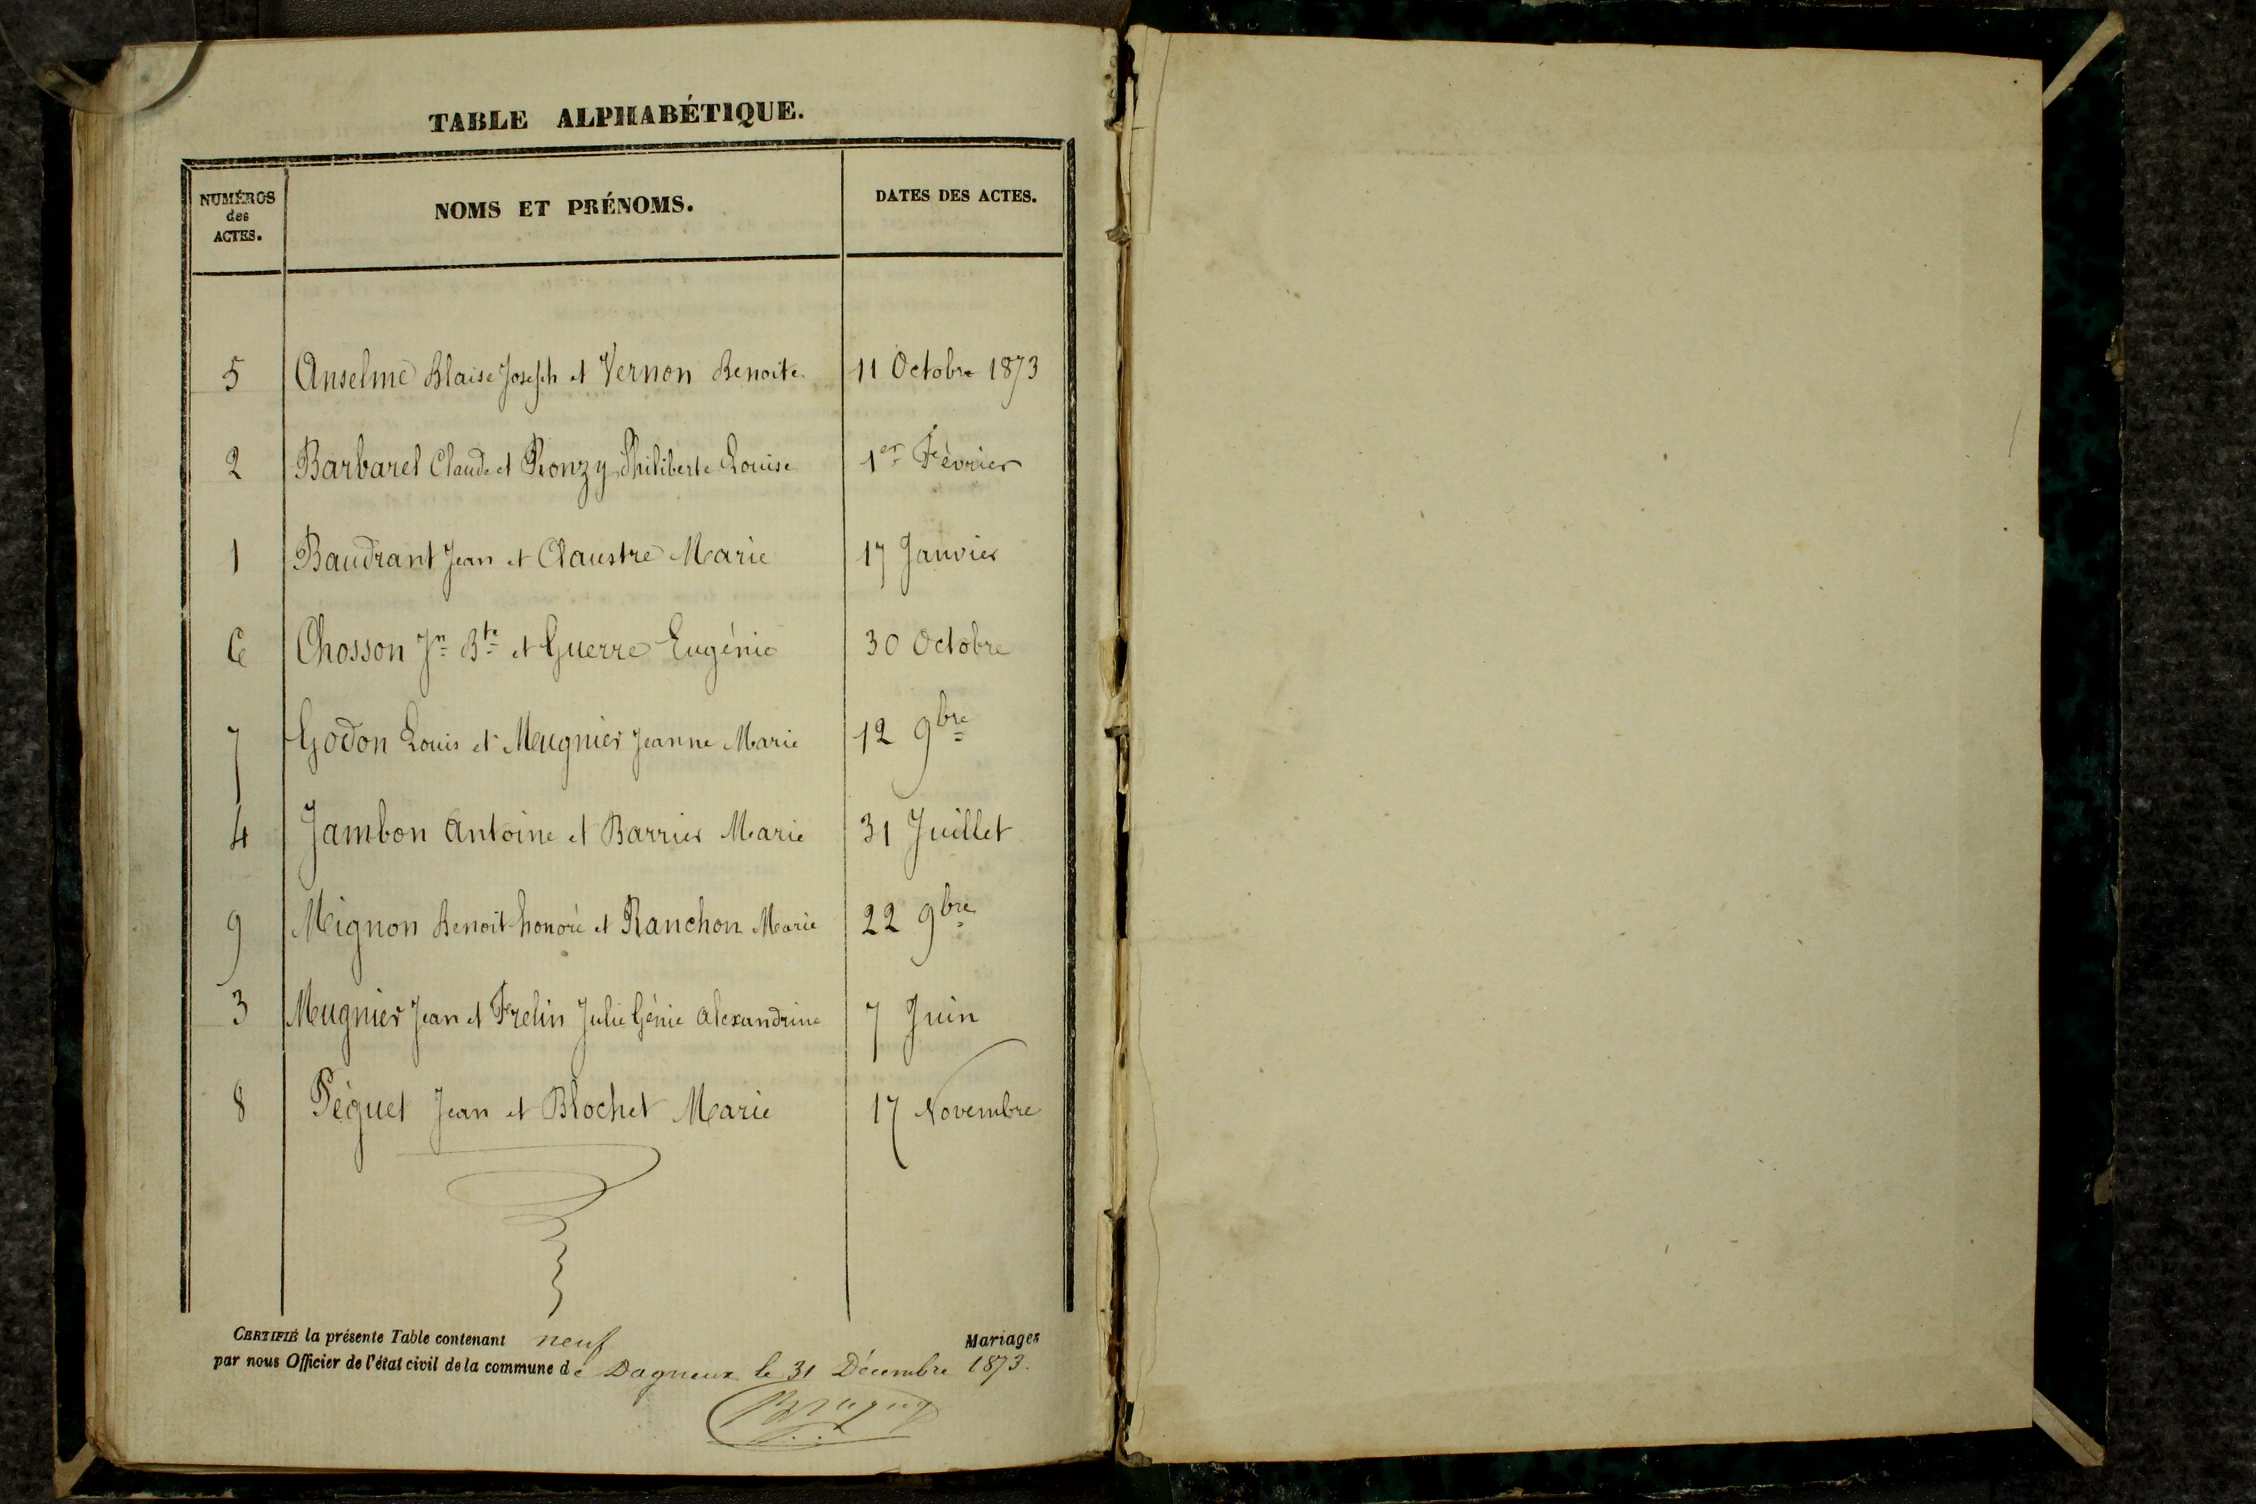 TABLE ALPHABÉTIQUE.
NUMÉROS des ACTES. NOMS ET PRÉNOMS. DATES DES ACTES.
5 Anselme Blaise Joseph et Vernon Benoite 11 Octobre 1873
2 Barbarel Claude et Ronzy Philiberte Louise 1er Février
1 Baudrant Jean et Claustre Marie 17 Janvier
6 Chosson Jn Bte et Guerre Eugénie 30 Octobre
7 Godon Louis et Meugnier Jeanne Marie 12 9bre
4 Jambon Antoine et Barrier Marie 31 Juillet
9 Mignon Benoit honoré et Ranchon Marie 22 9bre
3 Meugnier Jean et Frelin Julie Génie Alexandrine 7 Juin
8 Péguet Jean et Blochet Marie 17 Novembre
CERTIFIÉ la présente Table contenant neuf Mariages
par nous Officier de l'état civil de la commune de Dagneux le 31 Décembre 1873.